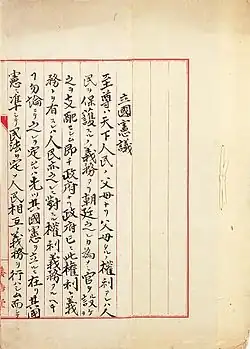 立國憲議
至尊ハ天下人民ノ父母ナリ父母タルノ權利アレハ人
民ヲ保護スルノ義務アリ朝廷之カ為メ官ヲ設ケ
之ヲ支配セシム即チ政府ナリ政府已ニ此權利義
務ヲ有スレハ人民亦之ニ對スル權利義務
ヿ勿論ナリ之ヲ定ルハ先ツ其國憲ヲ立ルニ在リ其國
憲ニ準シ民法ヲ定メ人民相互ノ義務ヲ行ハシム而シ